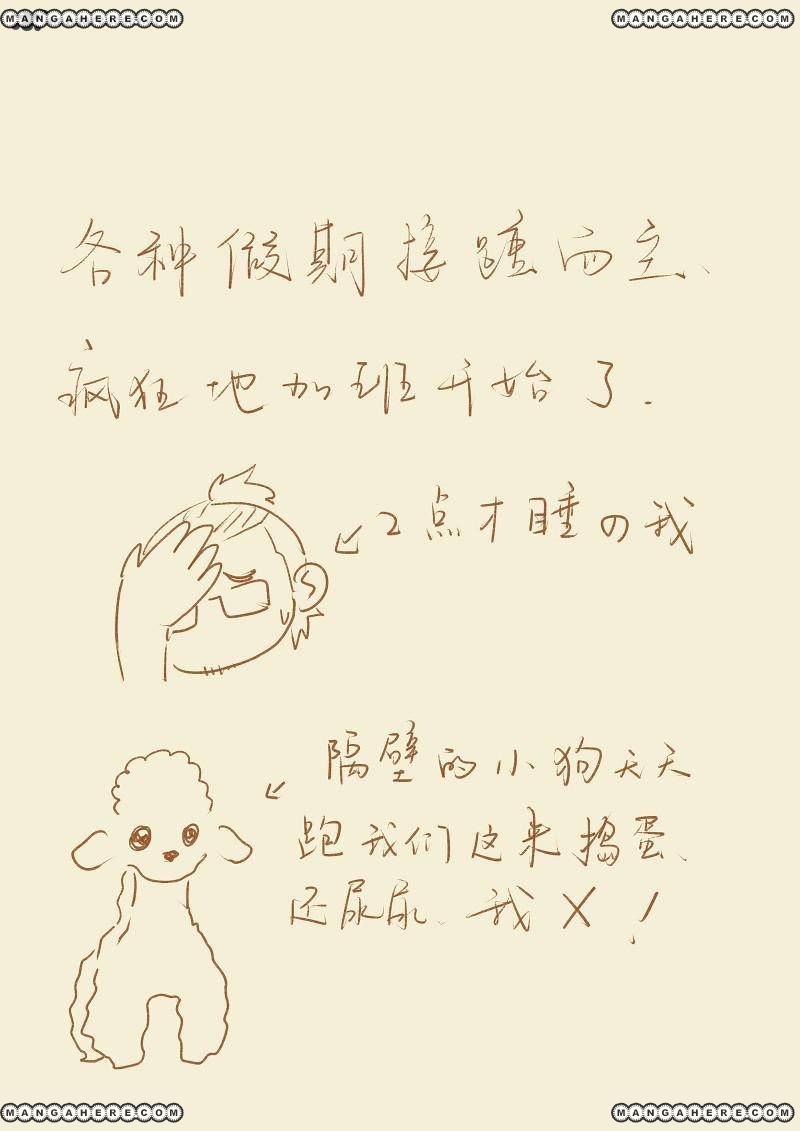 MANGAHERE.COM
MANGAHERE.COM
各种假期接踵而至、
疯狂地加班开始了.
2点才睡の我
隔壁的小狗天天
跑我们这来捣蛋、
还尿尿、我X!
MANGAHERE.COM
MANGAHERE.COM